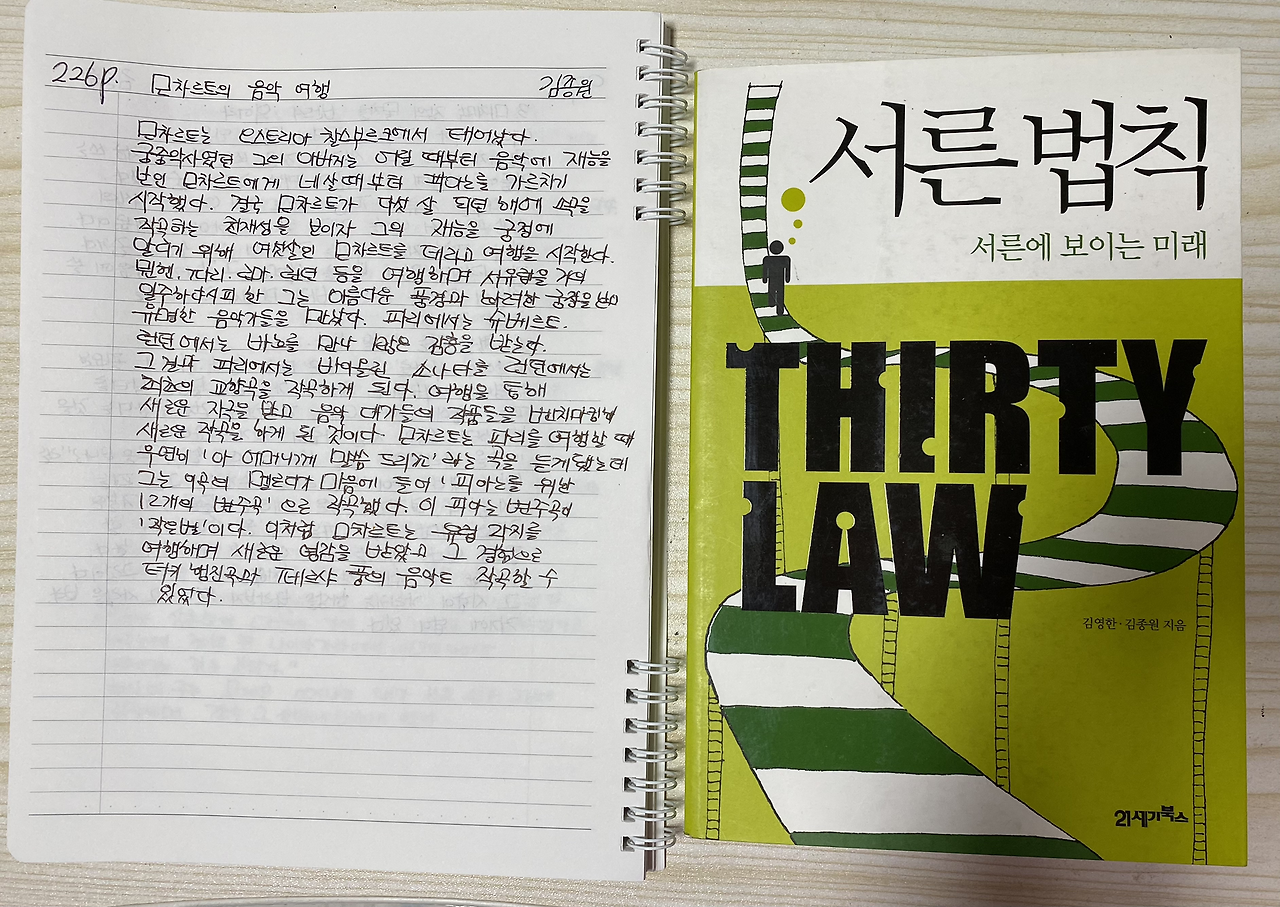 226p. 모차르트의 음악 여행 김종원
모차르트는 오스트리아 찰스부르크에서 태어났다.
궁중악사였던 그의 아버지는 어릴 때부터 음악에 재능을
보인 모차르트에게 네 살 때부터 피아노를 가르치기
시작했다. 결국 모차르트가 다섯 살 되던 해에 소곡을
작곡하는 천재성을 보이자 그의 재능을 궁정에
알리기 위해 여섯살인 모차르트를 데리고 여행을 시작한다.
뮌헨. 파리. 로마. 런던 등을 여행하며 서유럽을 거의
일주하다시피 한 그는 아름다운 풍경과 화려한 궁정을 보며
유명한 음악가들을 만났다. 파리에서는 슈베르트.
런던에서는 바흐를 만나 많은 감흥을 받는다.
그 결과 파리에서는 바이올린 소나타를 런던에서는
최초의 교향곡을 작곡하게 된다. 여행을 통해
새로운 자극을 받고 음악 대가들의 작품들을 벤치마킹해
새로운 작곡을 하게 된 것이다 모차르트는 파리를 여행할 때
우연히 '아 어머니께 말씀 드리죠' 라는 곡을 듣게 됐는데
그는 이곡의 멜로디가 마음에 들어 '피아노를 위한
12개의 변주곡' 으로 작곡했다. 이 피아노 변주곡이
'작은별'이다. 이처럼 모차르트는 유럽 각지를
여행하며 새로운 영감을 받았고 그 경험으로
터키 행진곡과 페르샤 풍의 음악도 작곡할 수
있었다.
서른 법칙
서른에 보이는 미래
THIRTY
LAW
김영한·김종원 지음
21세기북스